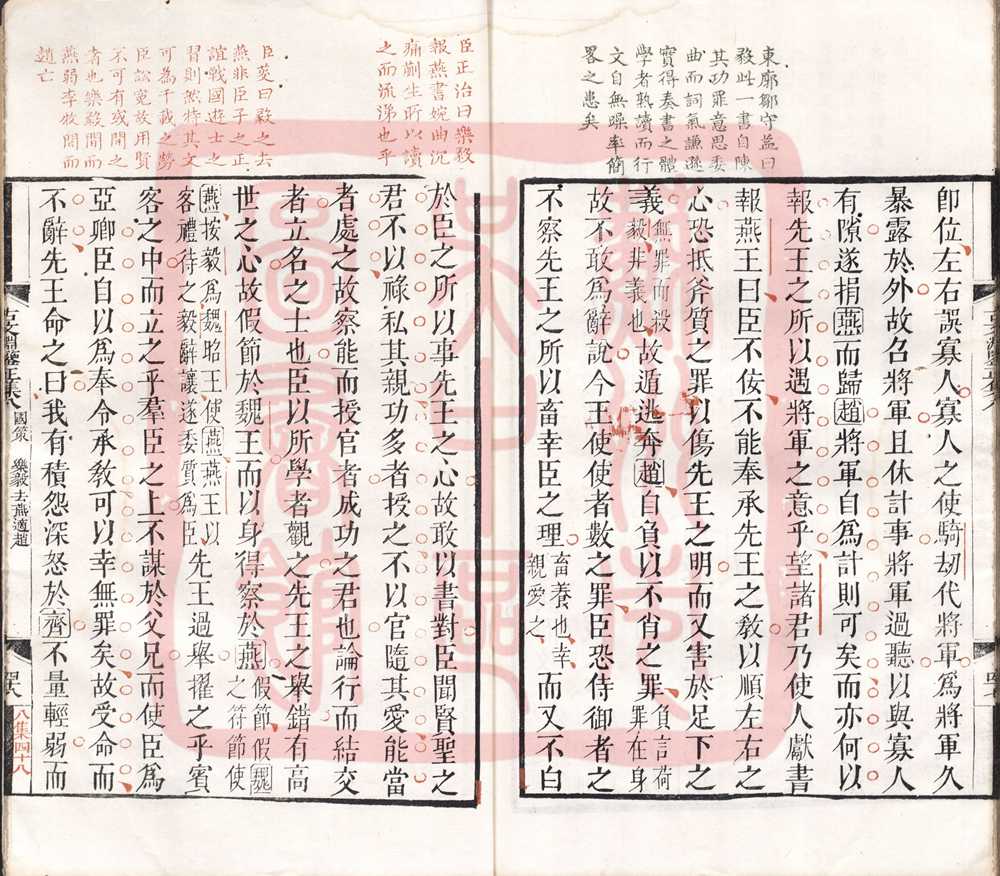 東廓鄒守益曰
毅此一書自陳
其功罪意思委
曲而詞氣謙遜
實得奏書之體
學者熟讀而行
文自無躁率簡
畧之患矣
卽位左右誤寡人寡人之使騎刧代將軍爲將軍久
暴露於外故召將軍且休計事將軍過聽以與寡人
有隙遂捐燕而歸趙將軍自爲計則可矣而亦何以
報先王之所以遇將軍之意乎望諸君乃使人獻書
報燕王曰臣不佞不能奉承先王之敎以順左右之
心恐抵斧質之罪以傷先王之明而又害於足下之
義無罪而殺毅非義也故遁逃奔趙自負以不肖之罪負言荷罪在身
故不敢爲辭說今王使使者數之罪臣恐侍御者之
不察先王之所以畜幸臣之理畜養也幸親愛之而又不白
臣正治曰樂毅
報燕書婉曲沉
痛蒯生所以讀
之而流涕也乎
於臣之所以事先王之心故敢以書對臣聞賢聖之
君不以祿私其親功多者授之不以官隨其愛能當
者處之故察能而授官者成功之君也論行而結交
者立名之士也臣以所學者觀之先王之舉錯有高
世之心故假節於魏王而以身得察於燕假節假魏之符節使
燕按毅爲魏昭王使燕燕王以客禮待之毅辭讓遂委質爲臣先王過舉擢之乎賓
客之中而立之乎羣臣之上不謀於父兄而使臣爲
亞卿臣自以爲奉令承敎可以幸無罪矣故受命而
不辭先王命之曰我有積怨深怒於齊不量輕弱而
臣菼曰毅之去
燕非臣子之正
誼戰國遊士之
習則然特其文
可為千載之勞
臣訟寃故用賢
不可有或間之
者也樂毅間而
燕弱李牧間而
趙亡
國策
樂毅去燕適趙
八集四十八